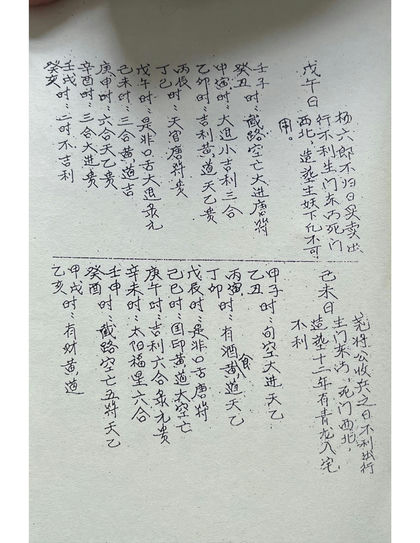 戊午日
杨六郎不归日买卖出
行不利生门东西死门
西北，造葬主妖下凡不可
用。
壬子时：截路空亡大进唐符
癸丑
甲寅时：大退小吉利三合
乙卯时：吉利黄道天乙贵
丙辰时：天官唐符贵
丁巳
戊午时：是非口舌大退最凶
己未时：三合黄道吉
庚申时：六合天乙贵
辛酉时：三合大进贵
壬戌时：二时不吉利
癸亥
己未日
姜将公收兵之日不利出行
生门东西，死门西北，
造葬十二年有青龙入宅
不利
甲子时：旬空大进天乙
乙丑
丙寅时：有酒食黄道天乙
丁卯
戊辰时：是非口舌唐符
己巳时：国印黄道大空亡
庚午时：吉利六合最凶贵
辛未时：太阳福星六合
壬申时：截路空亡五符天乙
癸酉
甲戌时：有财黄道
乙亥